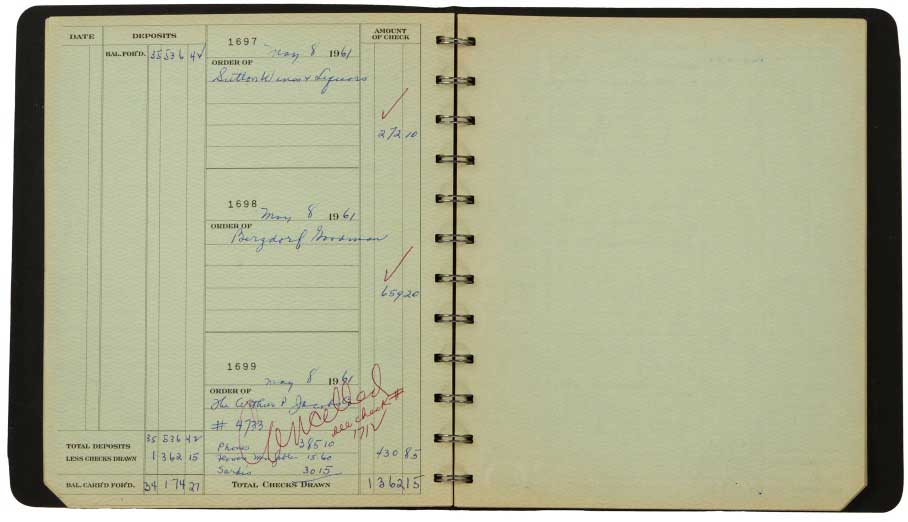 DATE DEPOSITS AMOUNT OF CHECK
BAL. FOR'D. 35 536 42
1697
May 8 1961
ORDER OF
Sutton Wines & Liquors
272 10
1698
May 8 1961
ORDER OF
Bergdorf Goodman
659 20
1699
May 8 1961
ORDER OF
The Arthur P. Jacobs
# 4733
Cancelled
see check #
1712
Phones 385 10
15.60
30 15
430 85
TOTAL DEPOSITS 35 536 42
LESS CHECKS DRAWN 1 362 15
BAL. CARR'D FOR'D. 34 174 27
TOTAL CHECKS DRAWN 1 362 15